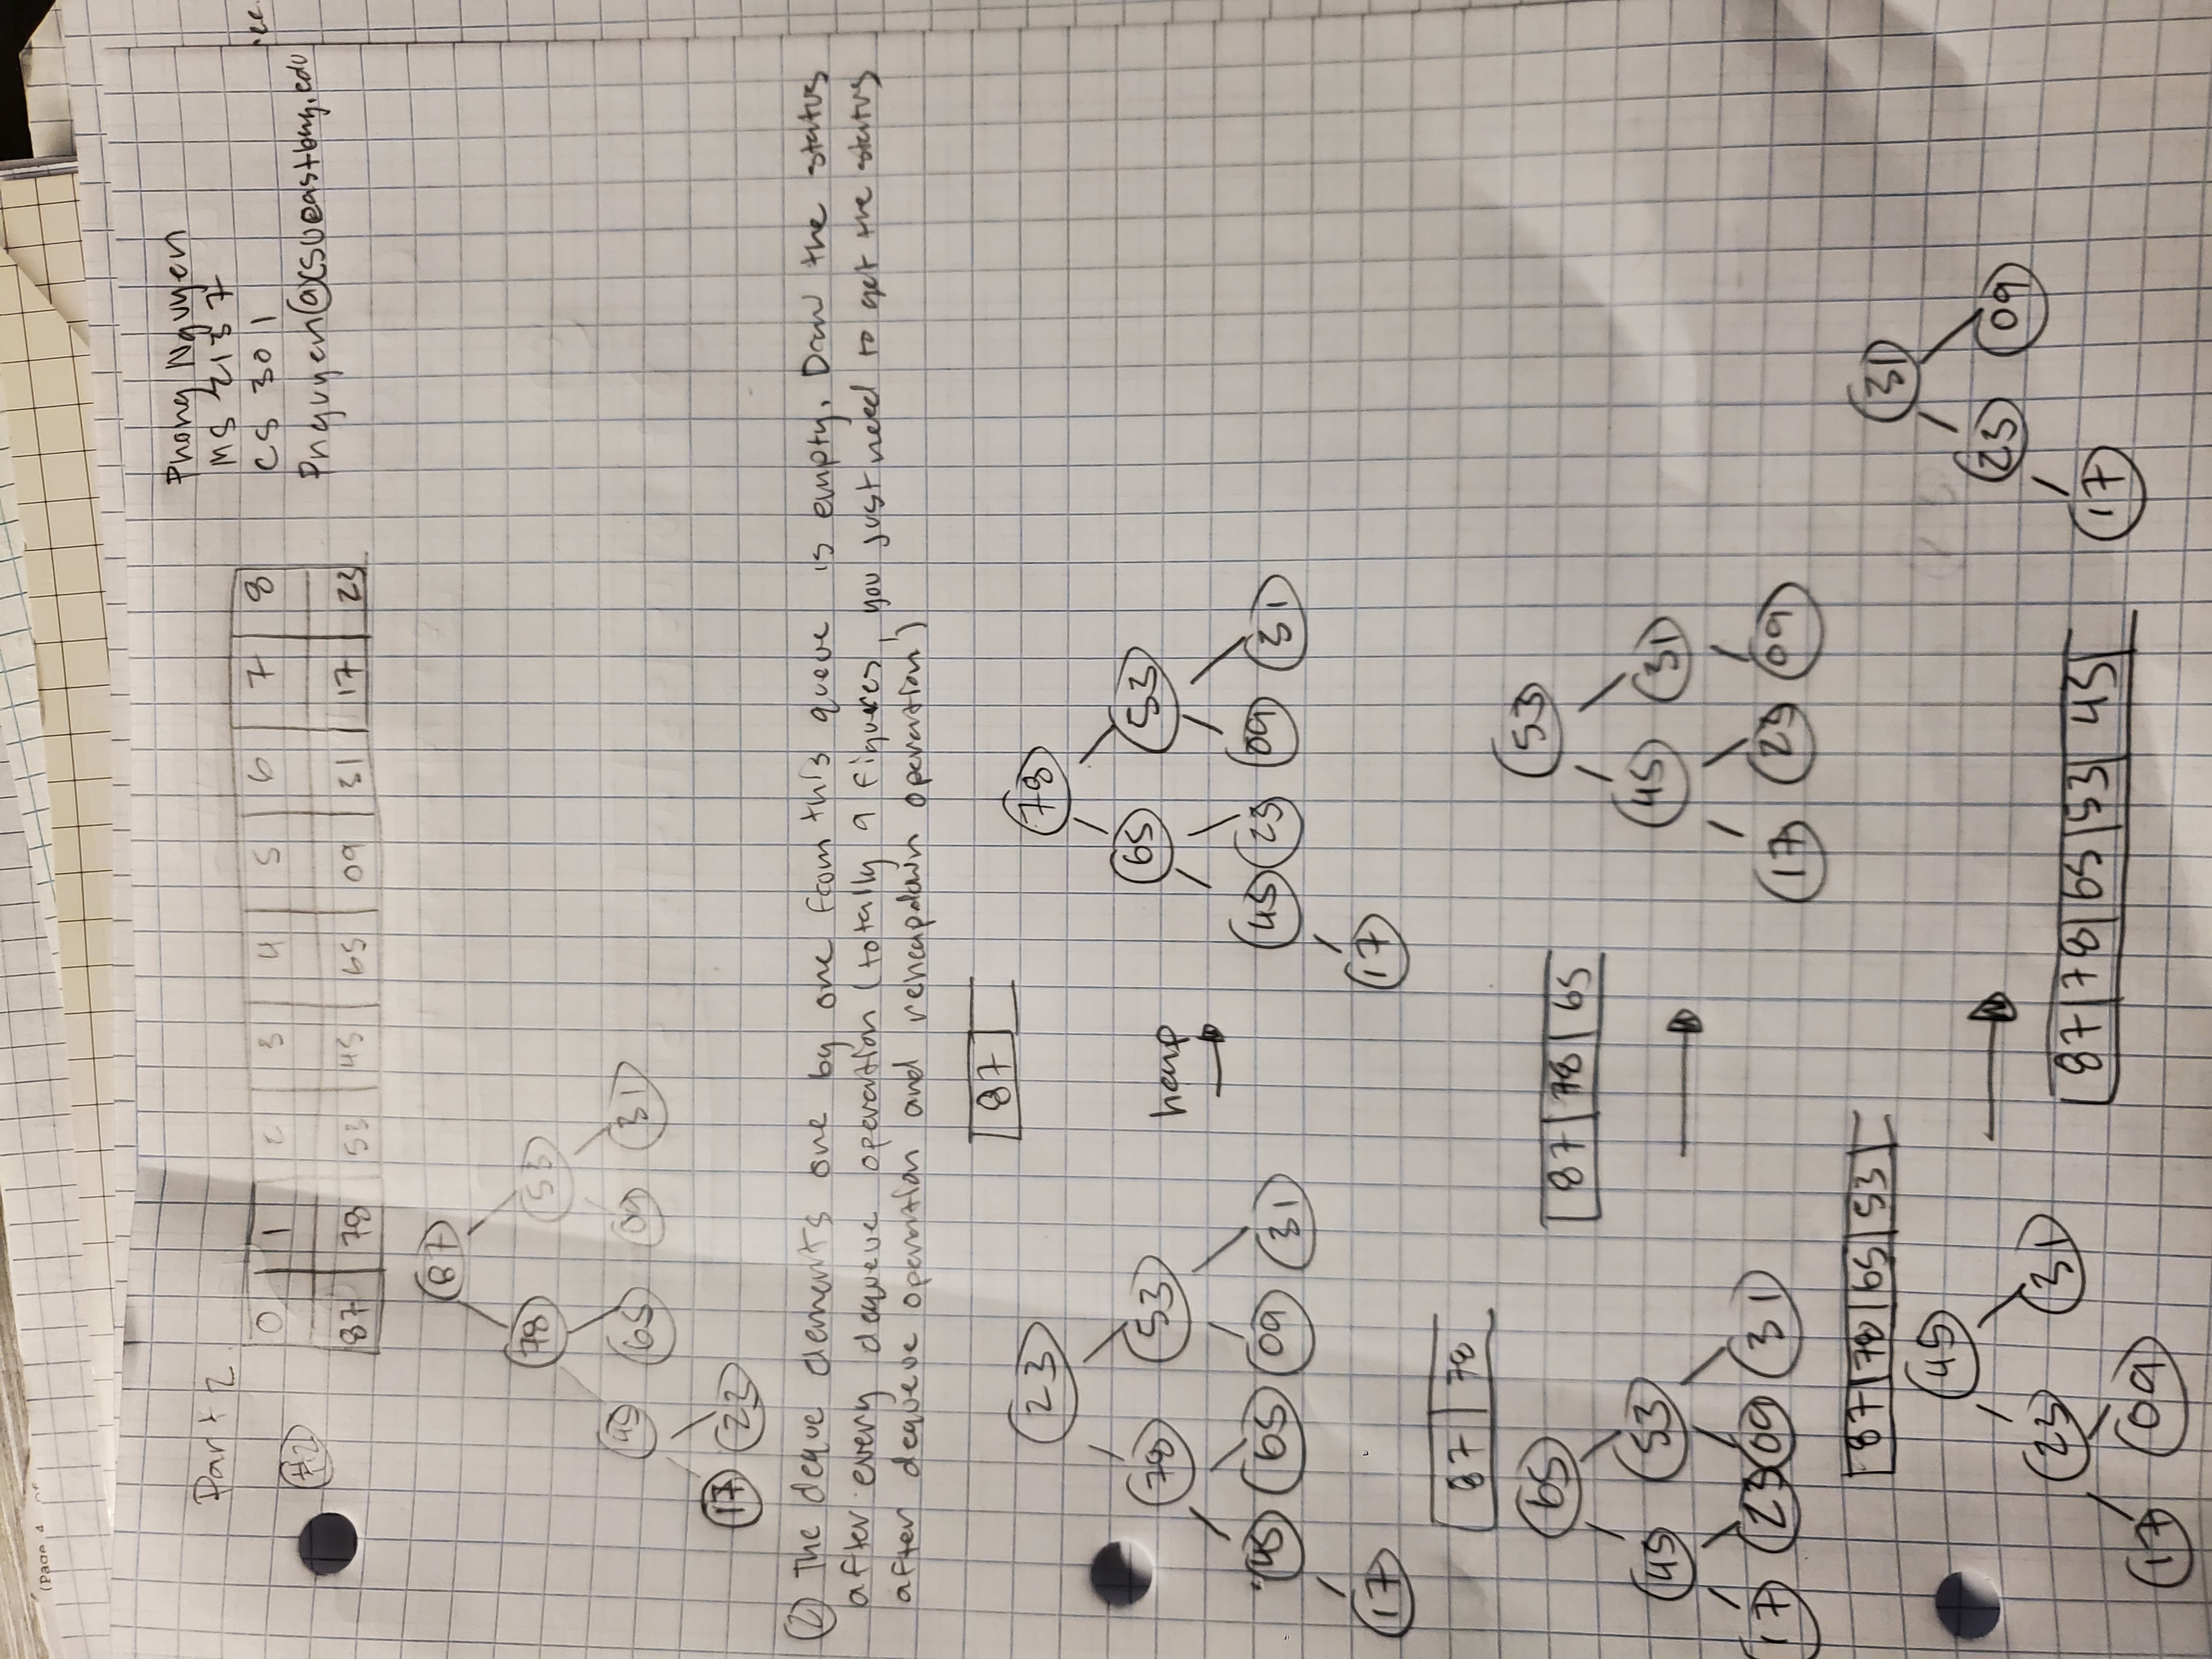 Phong Nguyen
MS 2137
CS 301
Pnguyen@CSUeastbay.edu
Part 2
#2
0 1 2 3 4 5 6 7 8
87 78 53 45 65 09 31 17 23
87
78 53
45 65 09 31
17 23
2) The deque elements one by one from this queue is empty. Draw the status
after every dequeue operation (totally 9 figures, you just need to get the status
after dequeue operation and reheapdown operation)
87
23
78 53
45 65 09 31
17
heap
78
65 53
45 23 09 31
17
87 78
65
45 53
17 23 09 31
87 78 65
53
45 31
17 23 09
87 78 65 53
45
23 31
17 09
87 78 65 53 45
31
23 09
17